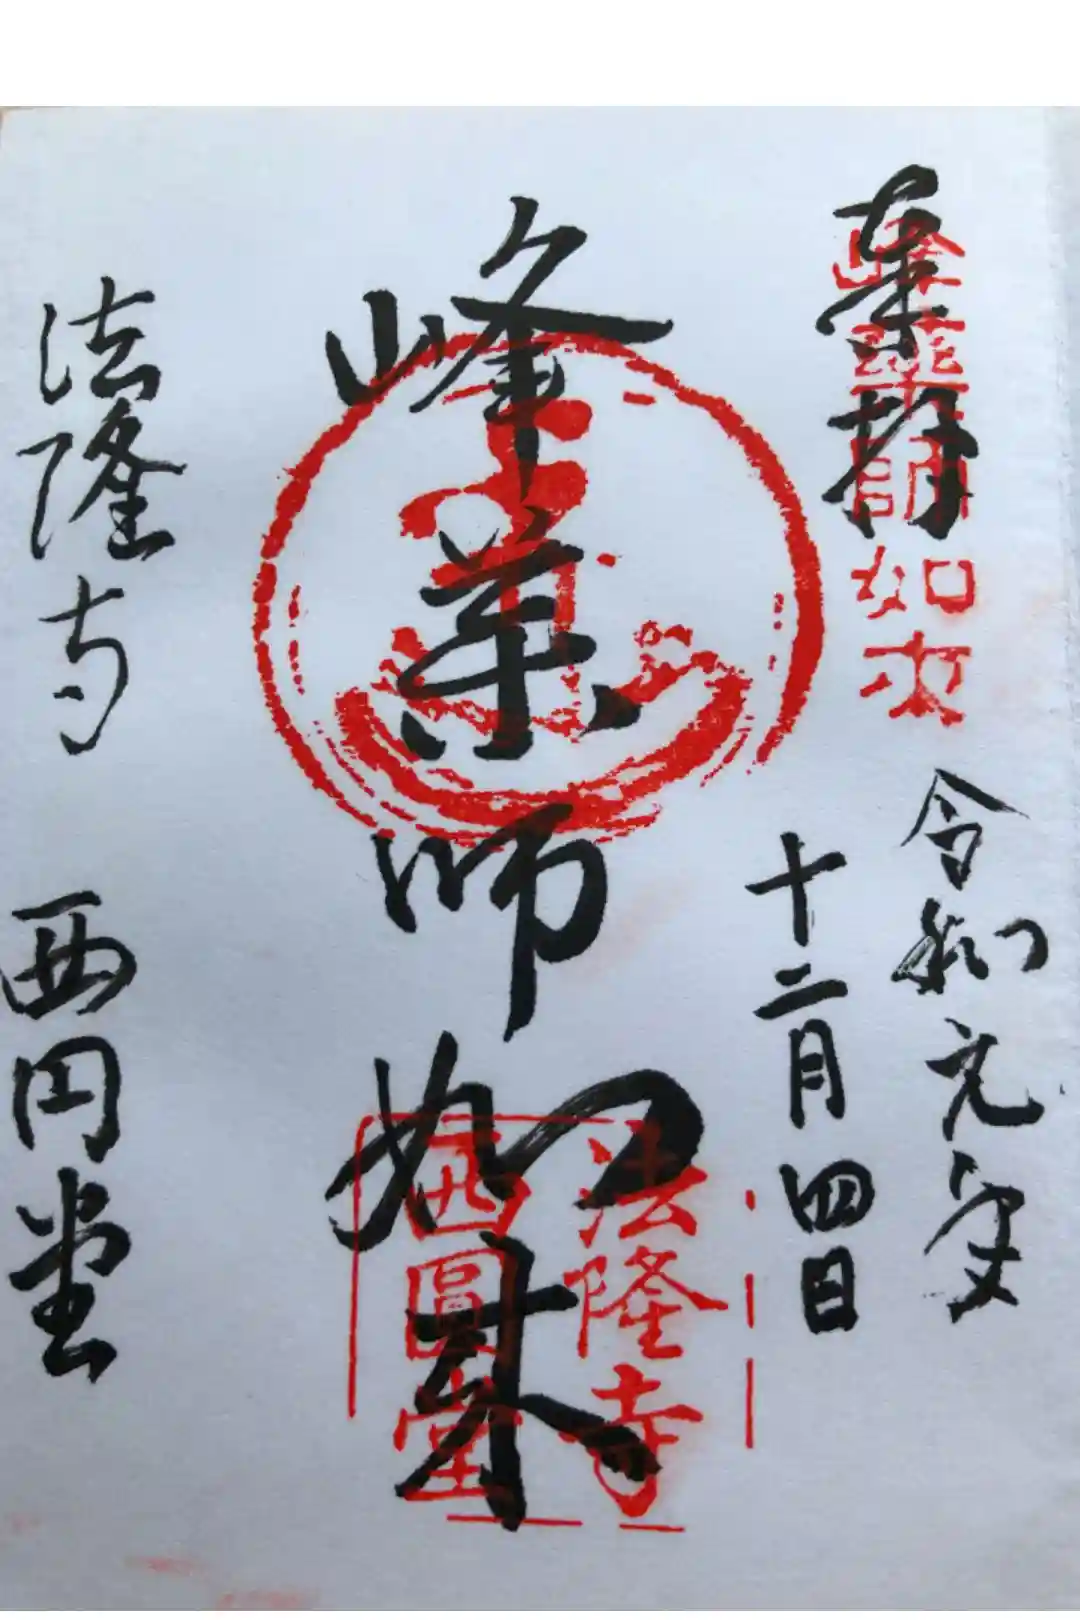 奉拝
峰薬師如来
令和元年
十二月四日
峰薬師如来
法隆寺
西圓堂
法隆寺 西円堂